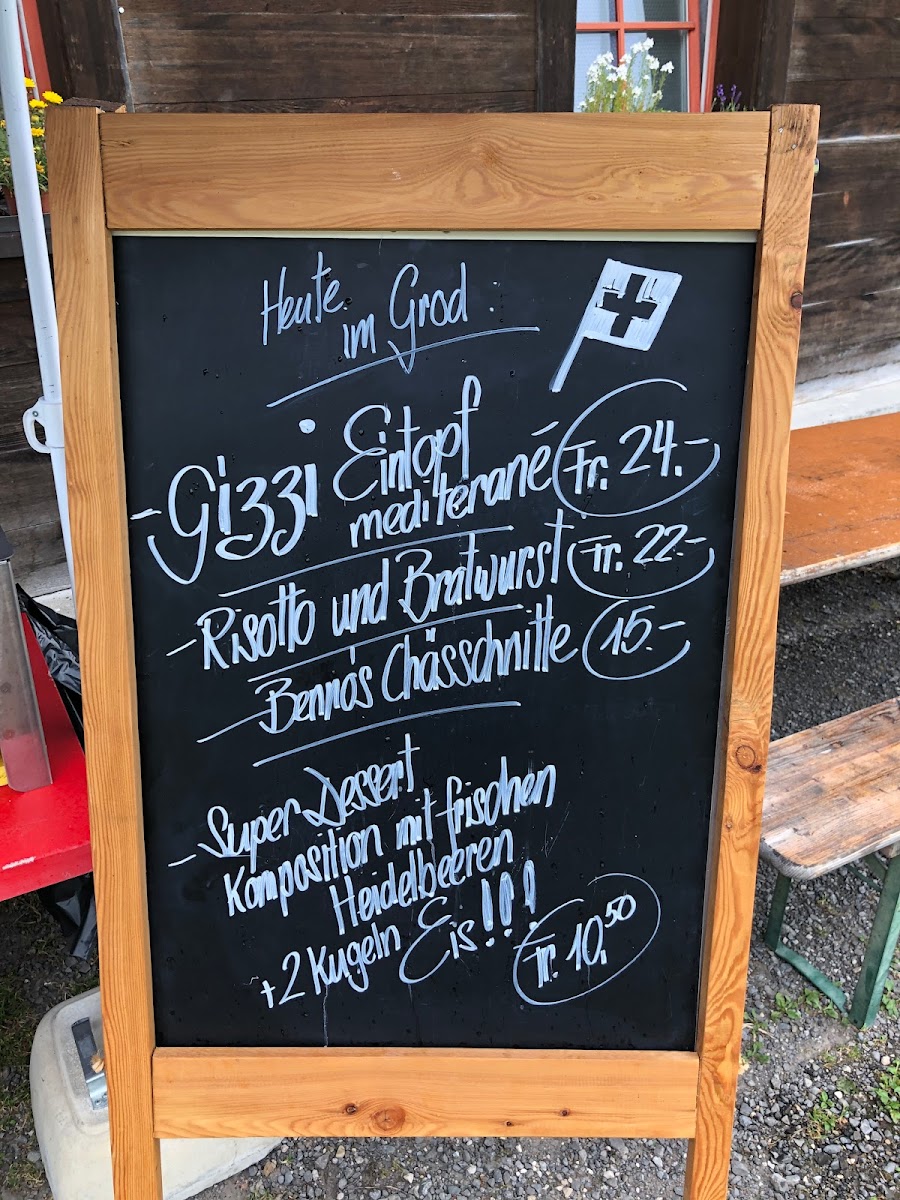 Heute
im Grod
- Gizzi Eintopf
mediterané Fr. 24.-
- Risotto und Bratwurst Fr. 22.-
- Benno's Chässchnitte 15.-
- Super Dessert
Komposition mit frischen
Heidelbeeren
+ 2 Kugeln Eis!!! Fr. 10.50